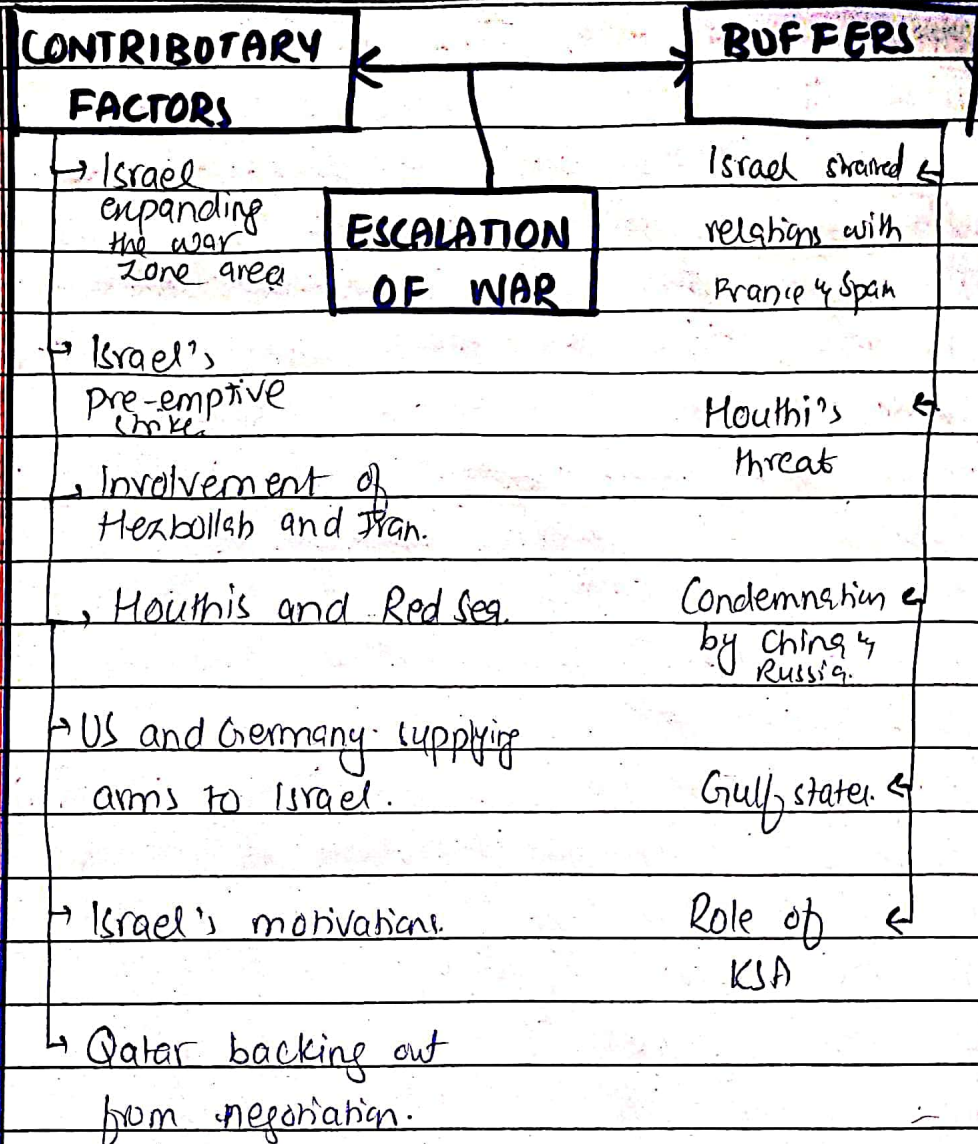 CONTRIBOTARY
FACTORS
→ Israel
expanding
the war
zone area
→ Israel's
pre-emptive
strike.
→ Involvement of
Hezbollah and Iran.
→ Houthis and Red Sea.
→ US and Germany supplying
arms to Israel.
→ Israel's motivations.
→ Qatar backing out
from negotiation.
ESCALATION
OF WAR
BUFFERS
Israel strained
relations with
France & Spain
Houthi's
threat
Condemnation
by China &
Russia.
Gulf states.
Role of
KSA